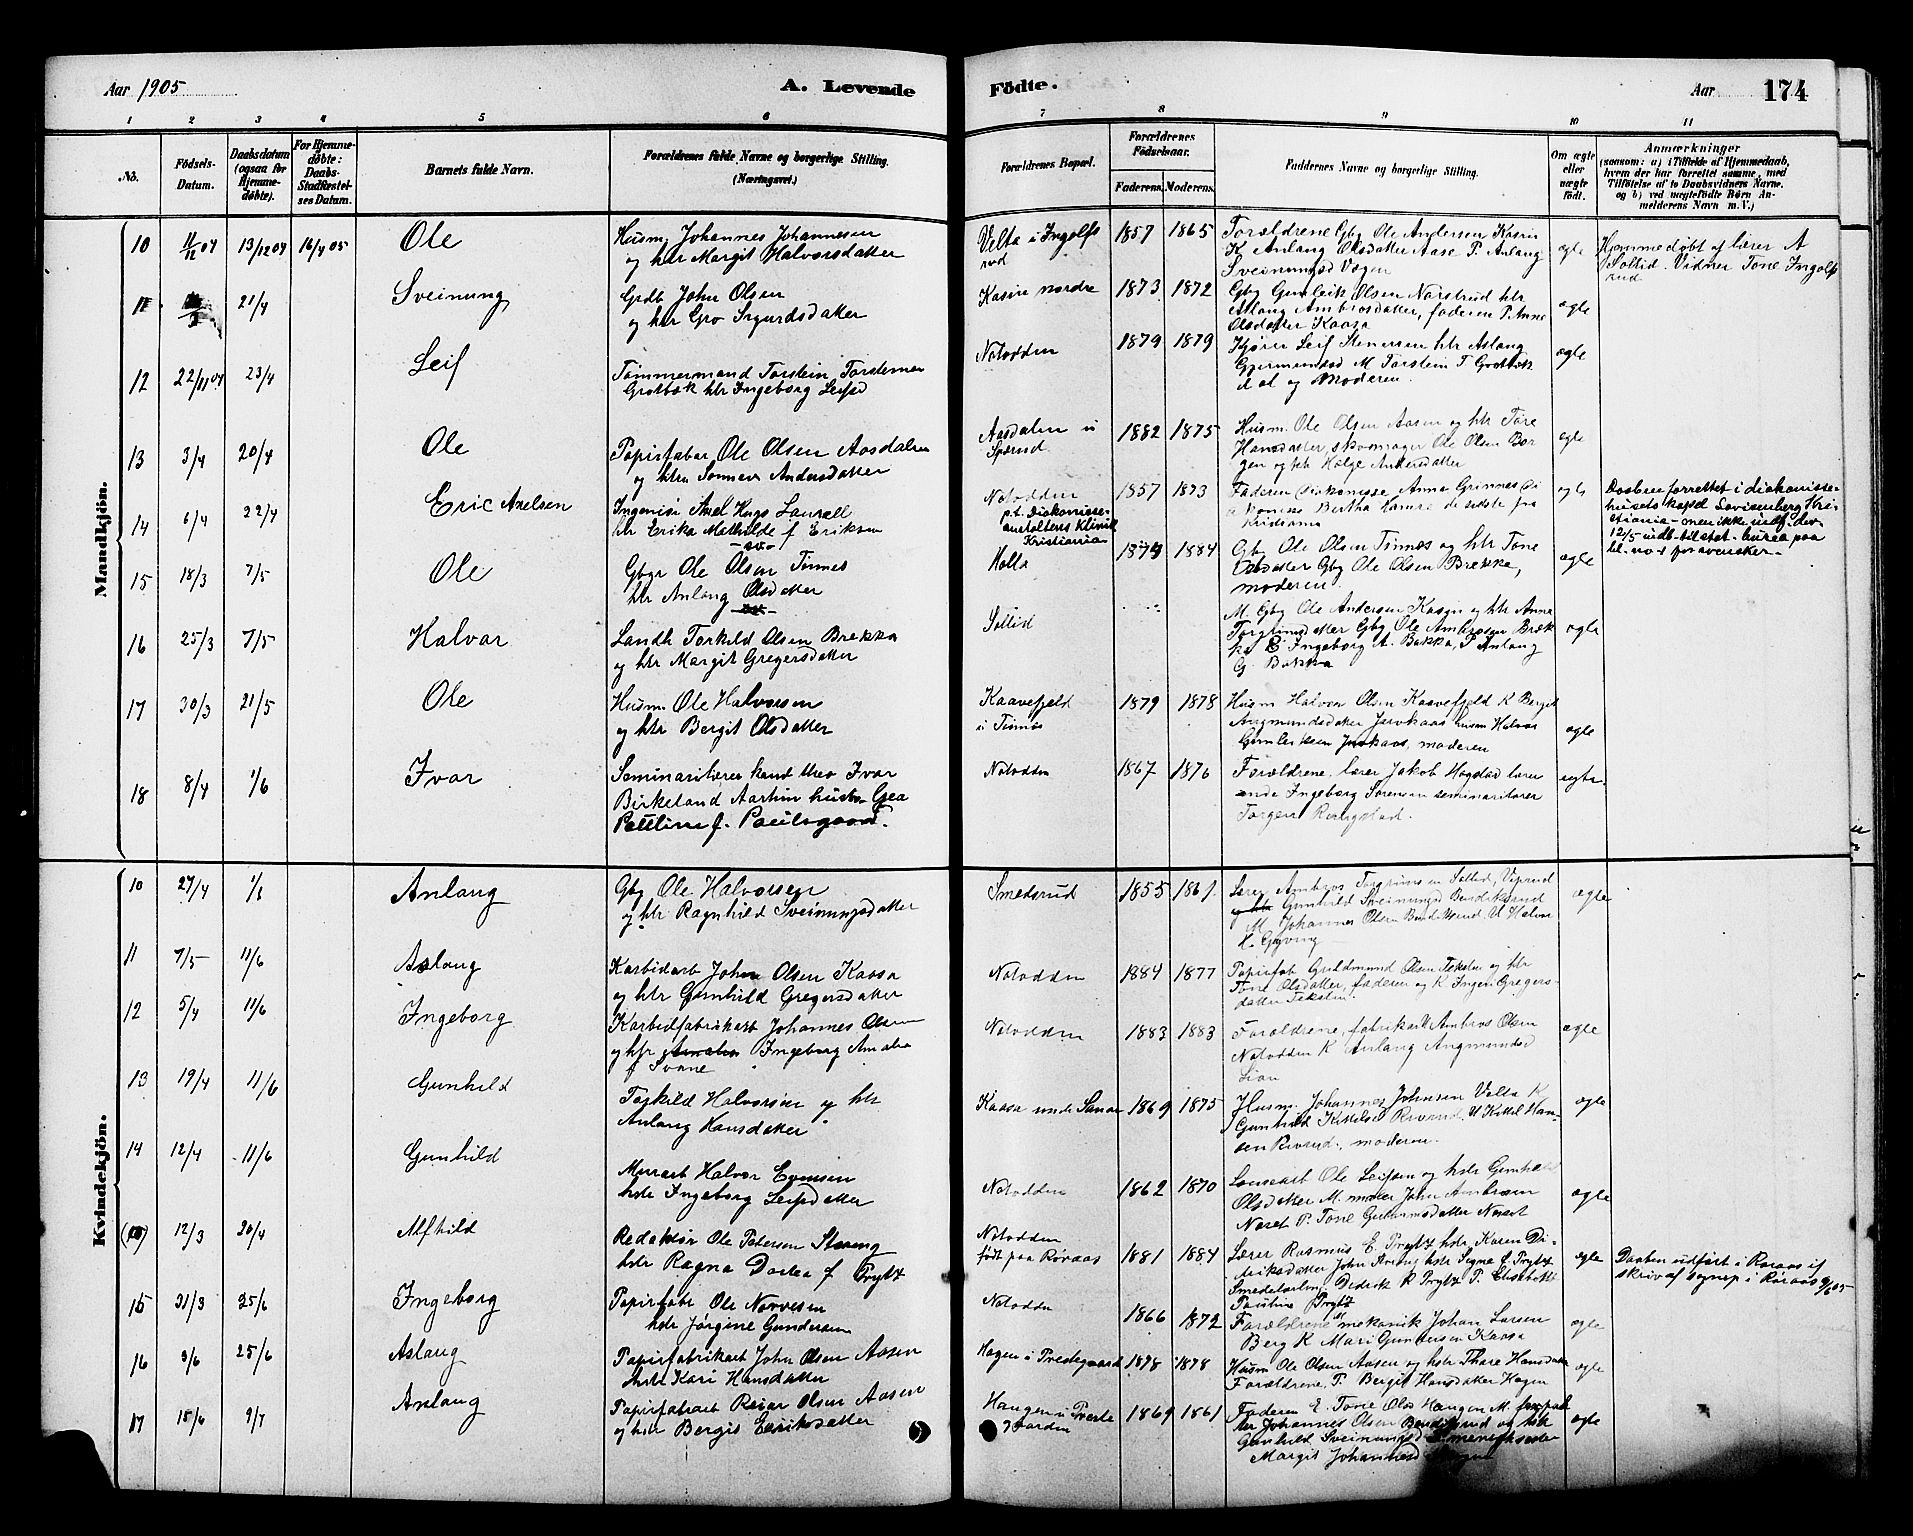 Aar 1905
A. Levende
Födte.
Aar 174
1 2 3 4 5 6 7 8 9 10 11
No.
Födsels-Datum.
Daabsdatum (ogsaa for Hjemme-döbte).
For Hjemme-döbte: Daabs-Stadfæstel-ses Datum.
Barnets fulde Navn.
Forældrenes fulde Navne og borgerlige Stilling. (Næringsvei.)
Forældrenes Bopæl.
Forældrenes Födselsaar.
Faderens. Moderens.
Faddernes Navne og borgerlige Stilling.
Om ægte eller uægte födt.
Anmærkninger
(saasom: a) i Tilfælde af Hjemmedaab,
hvem der har forrettet samme, med
Tilföielse af to Daabsvidners Navne,
og b) ved uægtefödte Börn An-
melderens Navn m. V.)
Mandkjön.
10 11/12 04 13/12 04 16/4 05 Ole
Husm. Johannes Johannesen
og htr Margit Halvorsdatter
Velta i Ingolfs
rud
1857 1865
Forældrene Gbg Ole Andersen Kasin
K Anlaug Olsdatter Aase P. Anlaug
Sveinungsd Vegen
ægte
Hjemmedøbt af lærer A
Soltid. Vidner Tone Ingolfs
rud
11 21/4 Sveinung
Grdb John Olsen
og htr Gro Sigurdsdatter
Kasin nordre 1873 1872
Gbg Gunleik Olsen Norstrud htr
Aslaug Ambrosdatter, faderen P. Anne
Olsdatter Kaasa
ægte
12 22/11 04 23/4 Leif
Tømmermand Torstein Torstensen
Grotbæk htr Ingeborg Leifsd
Notodden 1879 1879
Kjører Leif Stenersen htr Aslaug
Gjermundsd M Torstein T Grotbæk
og Moderen.
ægte
13 3/4 20/4 Ole
Papirfabar. Ole Olsen Aasdalen
og htr Sønnev Andersdatter
Aasdalen u
Spærud
1882 1875
Husm. Ole Olsen Aasen og htr Tore
Hansdatter, skomager Ole Olsen Bor
gen og htr Helge Andersdatter
ægte
14 6/4 22/4 Eric Axelsen
Ingeniør Axel Hugo Laurell
htr Erika Mathilde f Erikson
Notodden
p.t. Diakonisse-
anstaltens Klinik
Kristiania
1857 1873
Faderen Diakonisse Anna Grinnes Di
akonisse Bertha Hamre de sidste fra
Kristiania
ægte
Daaben forrettet i diakonisse-
husets kapel Lovisenberg Kri-
stiania - men ikke indf. der
12/5 indb. til stat. burea paa
bl. no 1 for svensker -
15 18/3 7/5 Ole
Gbgr Ole Olsen Tinnes
htr Anlaug Olsdatter
Holla 1879 1884
Gbg Ole Olsen Tinnes og htr Tone
Olsdatter Gbg Ole Olsen Brekka,
moderen.
ægte
16 25/3 7/5 Halvar
Landh Torkild Olsen Brekka
og htr Margit Gregersdatter
Soltid
M. Gbg Ole Andersen Kasin og htr Anna
Torgrimsdatter Gbg Ole Ambrosen Brek
ka E Ingeborg A. Bakka, P Anlaug
G. Bakka
ægte
17 30/3 21/5 Ole
Husm. Ole Halvorsen
og htr Bergit Olsdatter
Kaavefjeld
i Tinnes
1879 1878
Husm Halvor Olsen Kaavefjeld K Bergit
Angmundsdatter Juvkaas husm Halvor
Gunleiksen Juvkaas, moderen
ægte
18 8/4 1/6 Ivar
Seminarilærer kand theo Ivar
Birkeland Aartun hustr. Gea
Pauline f. Paulsgaard.
Notodden 1867 1876
Forældrene, lærer Jakob Hogstad lærer
inde Ingeborg Sørensen seminarilærer
Torgen Ringstad.
ægte
Kvindekjön.
10 27/4 1/6 Anlaug
Gbg Ole Halvorsen
og htr Ragnhild Sveinungsdatter
Smedsrud 1855 1861
Lærer Ambros Torgrimsen Soltid, Viprud
og htr Gunhild Sveinungsd Bendiksrud
M. Johannes Olsen Bendiksrud. U Halvor
H. Gryving
ægte
11 7/5 11/6 Aslaug
Karbidarb John Olsen Kaasa
og htr Gunhild Gregersdatter
Notodden 1884 1877
Papirfab Guldmund Olsen Tekslen og htr
Tone Olsdatter, faderen og K Ingen Gregers-
datter Tekslen.
12 5/4 11/6 Ingeborg
Karbidfabrikarb Johannes Olsen
og htr Amalia Ingeborg Amalia
f Svane
Notodden 1883 1883
Forældrene, fabrikarb Ambros Olsen
Notodden K Anlaug Angmundsd
Lien
ægte
13 19/4 11/6 Gunhild
Torkild Halvorsen og htr
Anlaug Hansdatter
Kaasa unde Sanar 1869 1875
Husm. Johannes Johnsen Velta K
Gunhild Kittelsd Rivrud. U Kittel Han-
sen Rivrud, moderen.
ægte
14 12/4 11/6 Gunhild
Murarb Halvor Evensen
hstr Ingeborg Leifsdatter
Notodden 1862 1870
Løusearb Ole Leifsen og hstr Gunhild
Olsdatter M. maler John Ambrosen
Næset P. Tone Gunarsdatter Næset
ægte
12/3 20/4 Alfhild
Redaktør Ole Pedersen Støeng
hstr Ragna Dorthea f Prytz
Notodden
født paa Røraas
1881 1884
Lærer Rasmus E. Prytz hstr Karen Di-
driksdatter John Støeng hstr Signe E. Prytz
Smedelærling Didrik R Prytz P. Elisabeth
Pauline Prytz
ægte
Daaben udført i Røraas if
skriv af sognep i Røraas 9/6 05
15 31/3 25/6 Ingeborg
Papirfabr Ole Norvesen
hstr Jørgine Gundersen
Notodden 1866 1872
Forældrene mekanik Johan Larsen
Berg K Mari Gundersen Kaasa
ægte
16 3/6 25/6 Aslaug
Papirfabrikarb John Olsen Aasen
hstr Kari Hansdatter
Hagen i Tvedegaard 1878 1878
Husm Ole Olsen Aasen og hstr Thore Hansdatter
Forældrene, P. Bergit Hansdatter Hagen
ægte
17 15/6 9/7 Anlaug
Papirfabrarb Reiar Olsen Aasen
og hstr Bergit Eriksdatter
Haugen u Tveite
gaarden
1869 1861
Faderen E Tone Olsd Haugen M.
Johannes Olsen Bendiksrud og htr
Gunhild Sveinungsd
Margit Johannesd
ægte